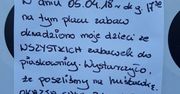 W dniu 05.04.18 ~ o g. 17:30
na tym placu zabaw
okradziono moje dzieci ze
WSZYSTKICH zabawek do
piaskownicy. Wystarczyło,
że poszliśmy na huśtawkę